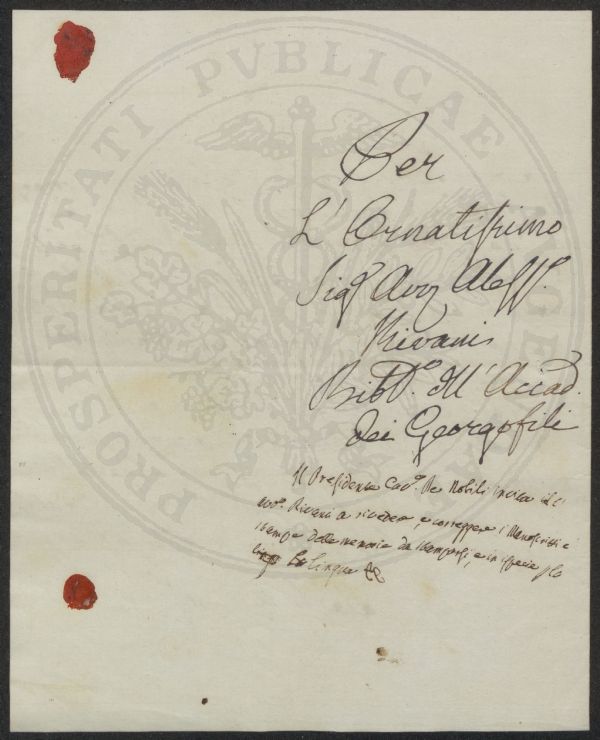 PROSPERITATI PUBLICAE
Per
L' Ornatissimo
Sigr Avv Aless.o
Rivani
Bibt.o dell' Accad.
dei Georgofili
Il Presidente Cav.r De Nobili incarica il S
Rivani a rivedere, e correggere i Manoscritti e
stampe delle memorie da stamparsi, e in specie p la
lingua &c